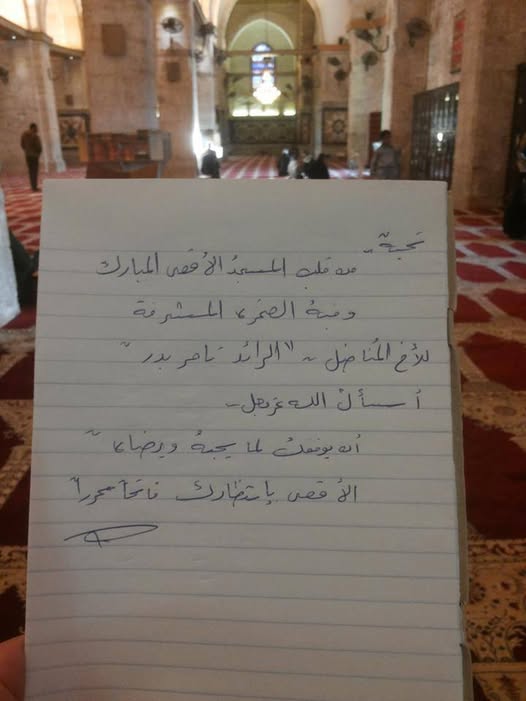 تحية
من قلب المسجد الأقصى المبارك
وقبة الصخرة المشرفة
للأخ المُناضل ~ "الرائد تامر بدر"
أسألُ الله عزوجل ~
أن يوفقك لما يحبهُ ويرضاه
الأقصى بإنتظارك فاتحاً محرراً